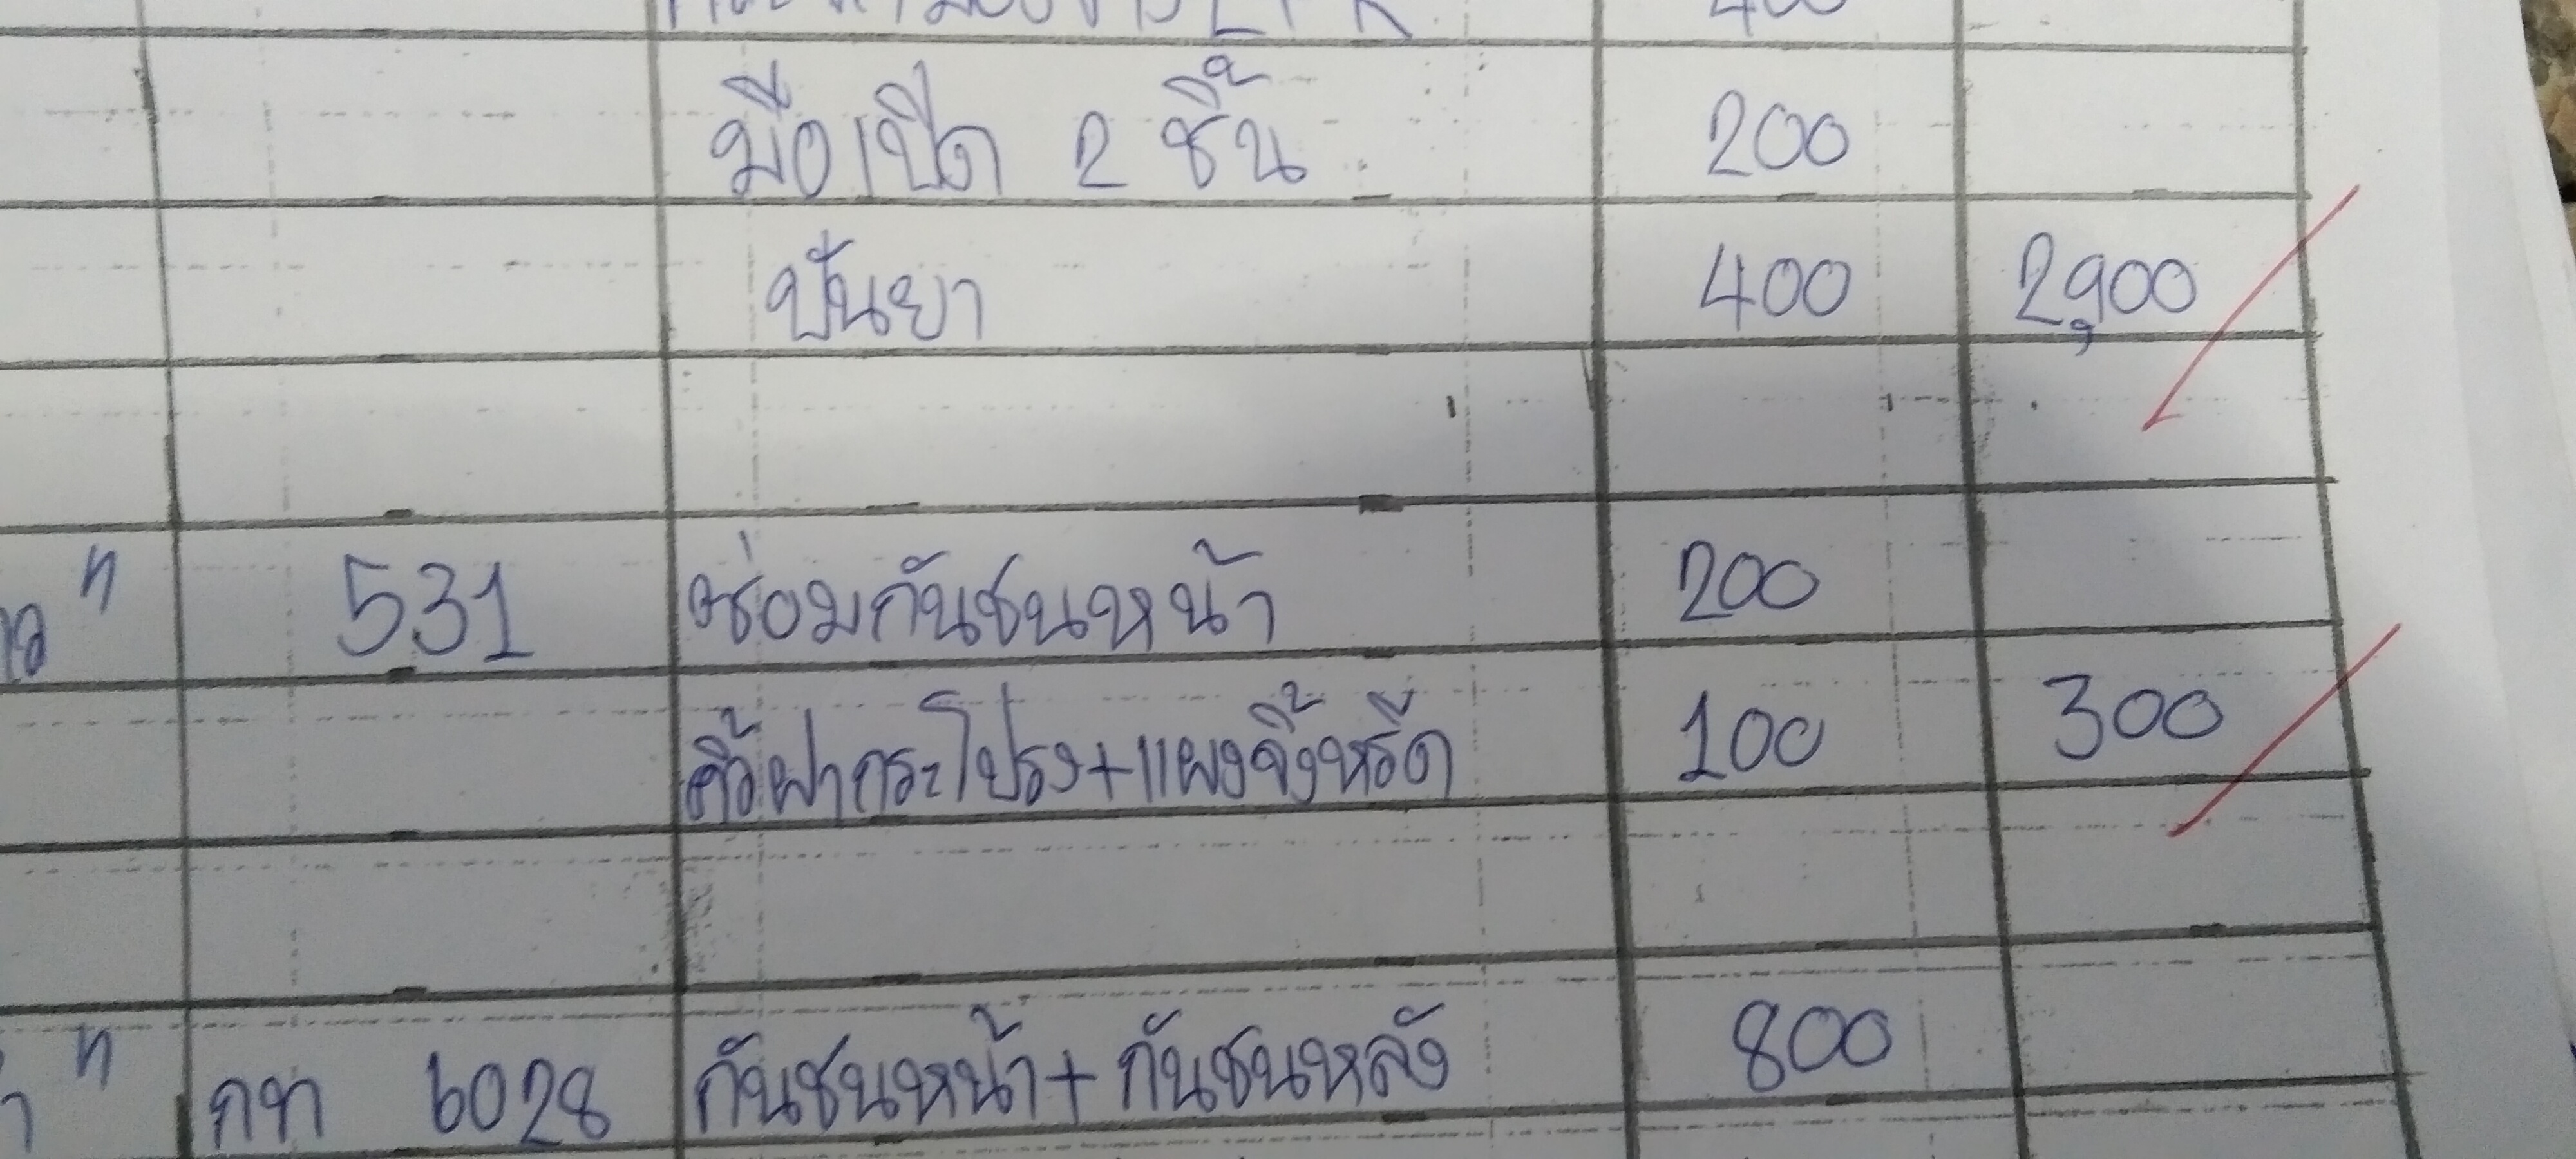 มือเปิด 2 ชิ้น 200
ปั่นยา 400 2,900
531 ซ่อมกันชนหน้า 200
คิ้วฝากระโปรง+แผงจิ้งหรีด 100 300
กท 6028 กันชนหน้า + กันชนหลัง 800